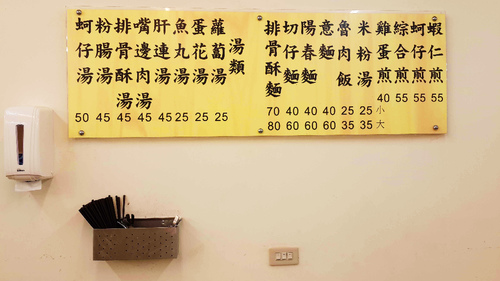 蝦仁煎 55
蚵仔煎 55
綜合煎 55
雞蛋煎 40
小
大
米粉湯 25 35
魯肉飯 25 35
意麵 40 60
陽春麵 40 60
切仔麵 40 60
排骨酥麵 70 80
湯類
蘿蔔湯 25
蛋花湯 25
魚丸湯 25
肝連湯 45
嘴邊肉湯 45
排骨酥湯 45
粉腸湯 45
蚵仔湯 50